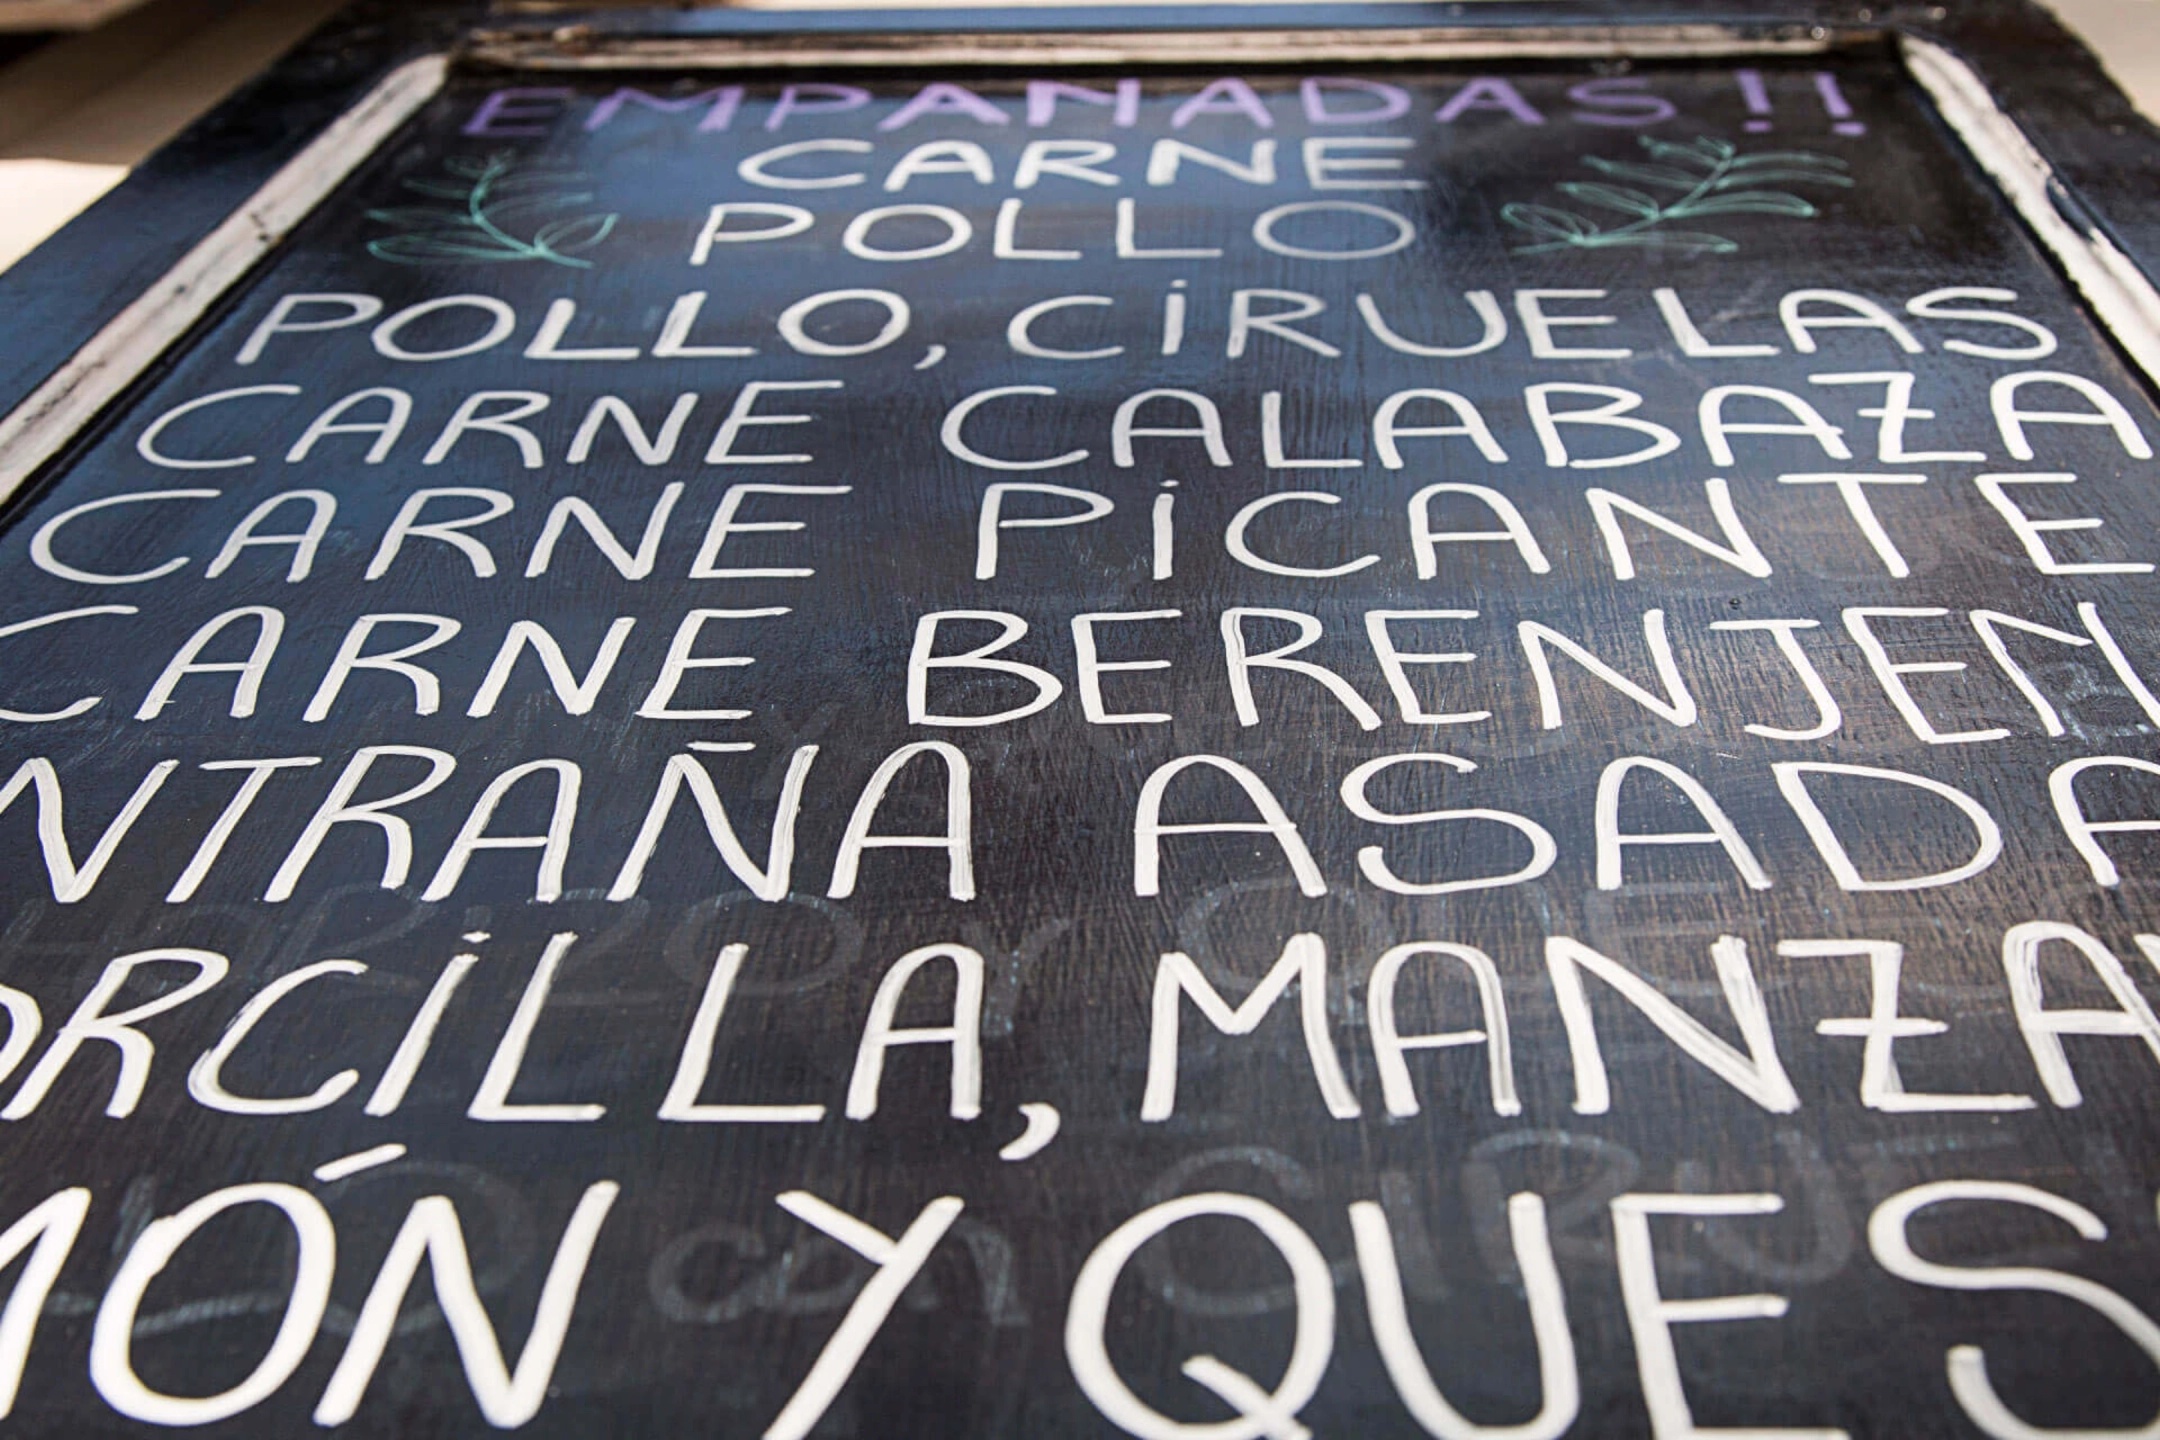 EMPANADAS!!
CARNE
POLLO
POLLO, CIRUELAS
CARNE CALABAZA
CARNE PICANTE
CARNE BERENJEN
NTRAÑA ASADA
ORCILLA, MANZAN
MÓN Y QUES